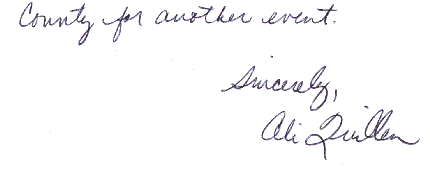 County for another event.
Sincerely,
Ali Quillen